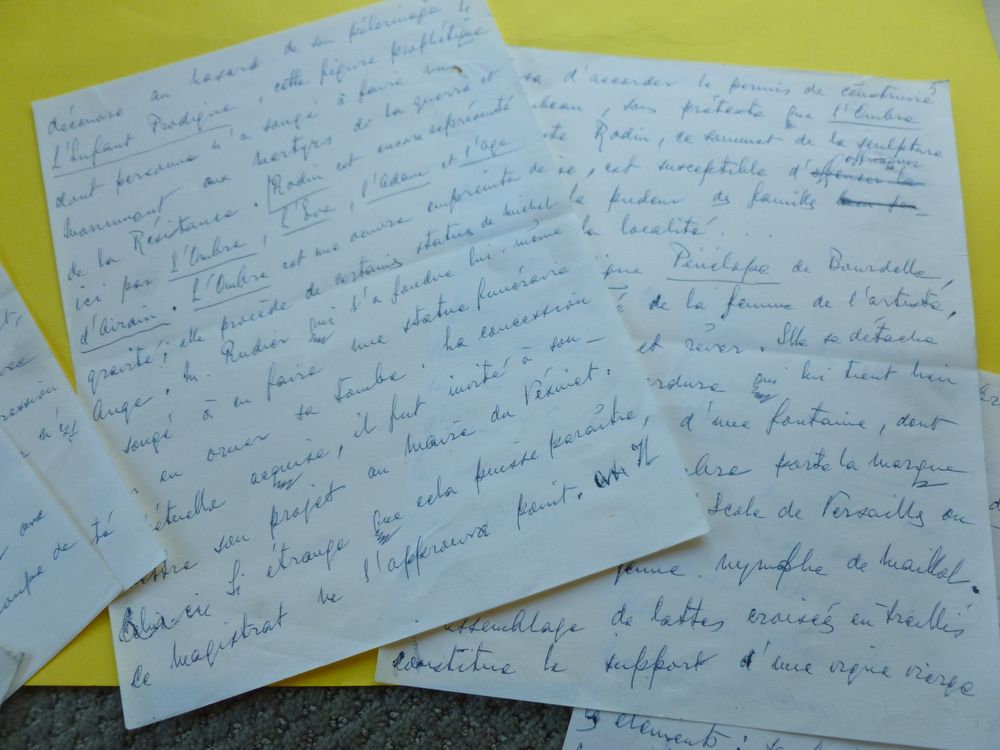 découvre au hasard de son pélerinage
L'Enfant Prodigue, cette figure prophétique
dont personne n'a songé à faire un
monument aux martyrs de la guerre et
de la Résistance. Rodin est encore représenté
ici par L'Ombre, L'Eve, l'Adam et l'age
d'Airain. L'Ombre est une œuvre empreinte de
gravité; elle procède de certaines statues de Michel
Ange. M. Rudier qui l'a fondue lui-même
songé à en faire une statue funéraire
en orner sa tombe. La concession
étuelle acquise, il fut invité à sou-
ettre son projet au maire du Vésinet.
Si étrange que cela puisse paraître,
ce magistrat ne l'approuva point.
5
sa d'accorder le permis de construire
beau, sous prétexte que l'Ombre
Rodin, ce sommet de la sculpture
offusquer
se, est susceptible d'offenser la
la pudeur des familles
la localité....
que Pénélope de Bourdelle,
de la femme de l'artiste,
et rêver. Elle se détache
erdure qui lui tient lieu
d'une fontaine, dont
bre porte la marque
École de Versailles ou
jeune nymphe de Maillol.
assemblage de lattes croisées en treillis
constitue le support d'une vigne vierge
éléments :
ression
n'est
oupe de